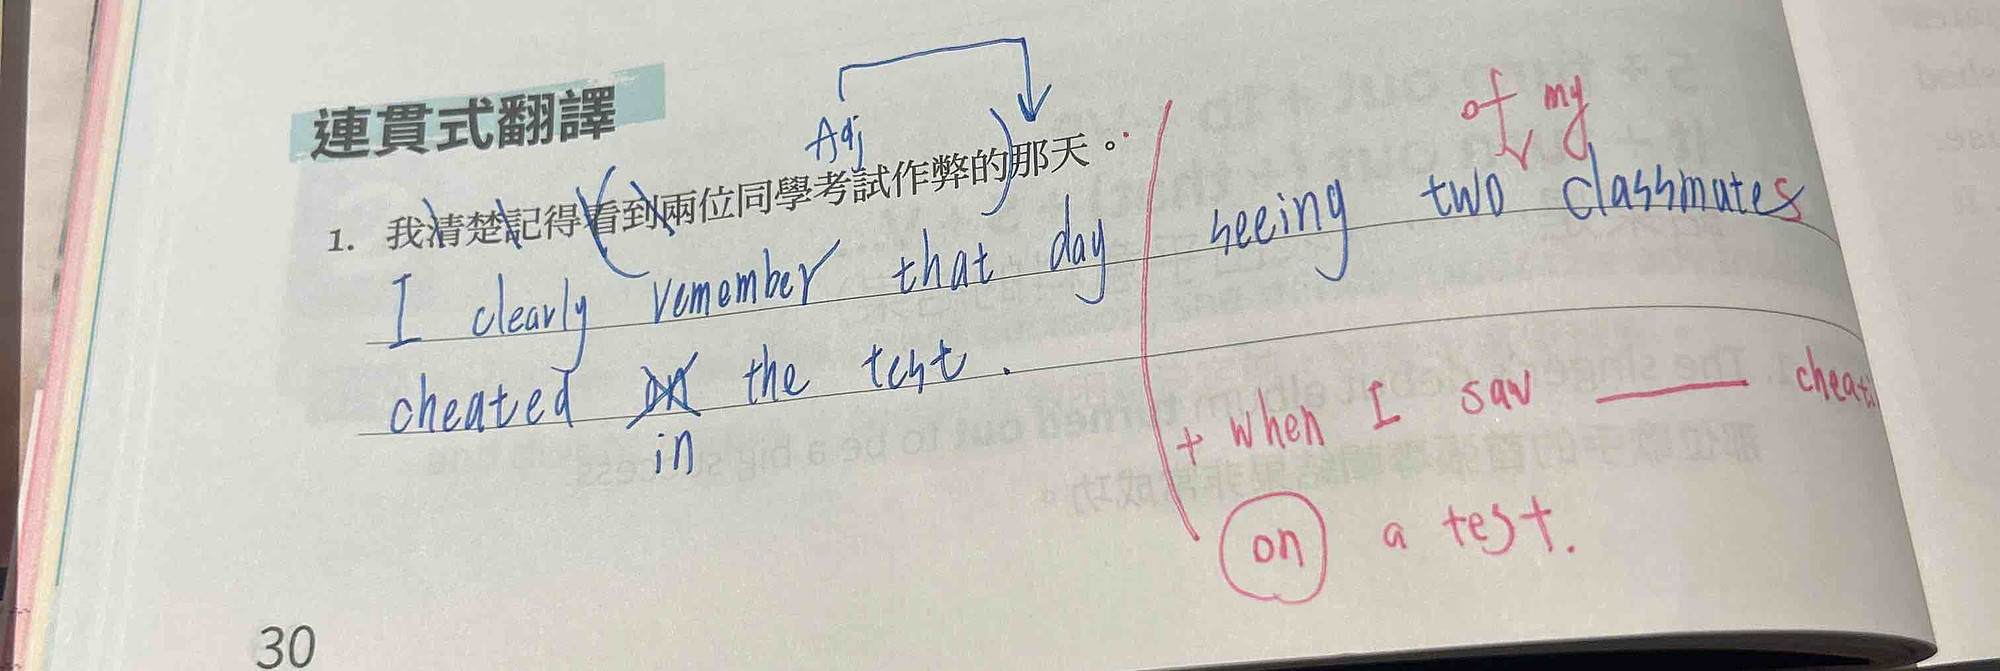 連貫式翻譯
Adj
1. 我清楚記得看到兩位同學考試作弊的那天。
of my
I clearly remember that day seeing two classmates
cheated on the test.
in
+ when I saw ____ cheat
on a test.
30